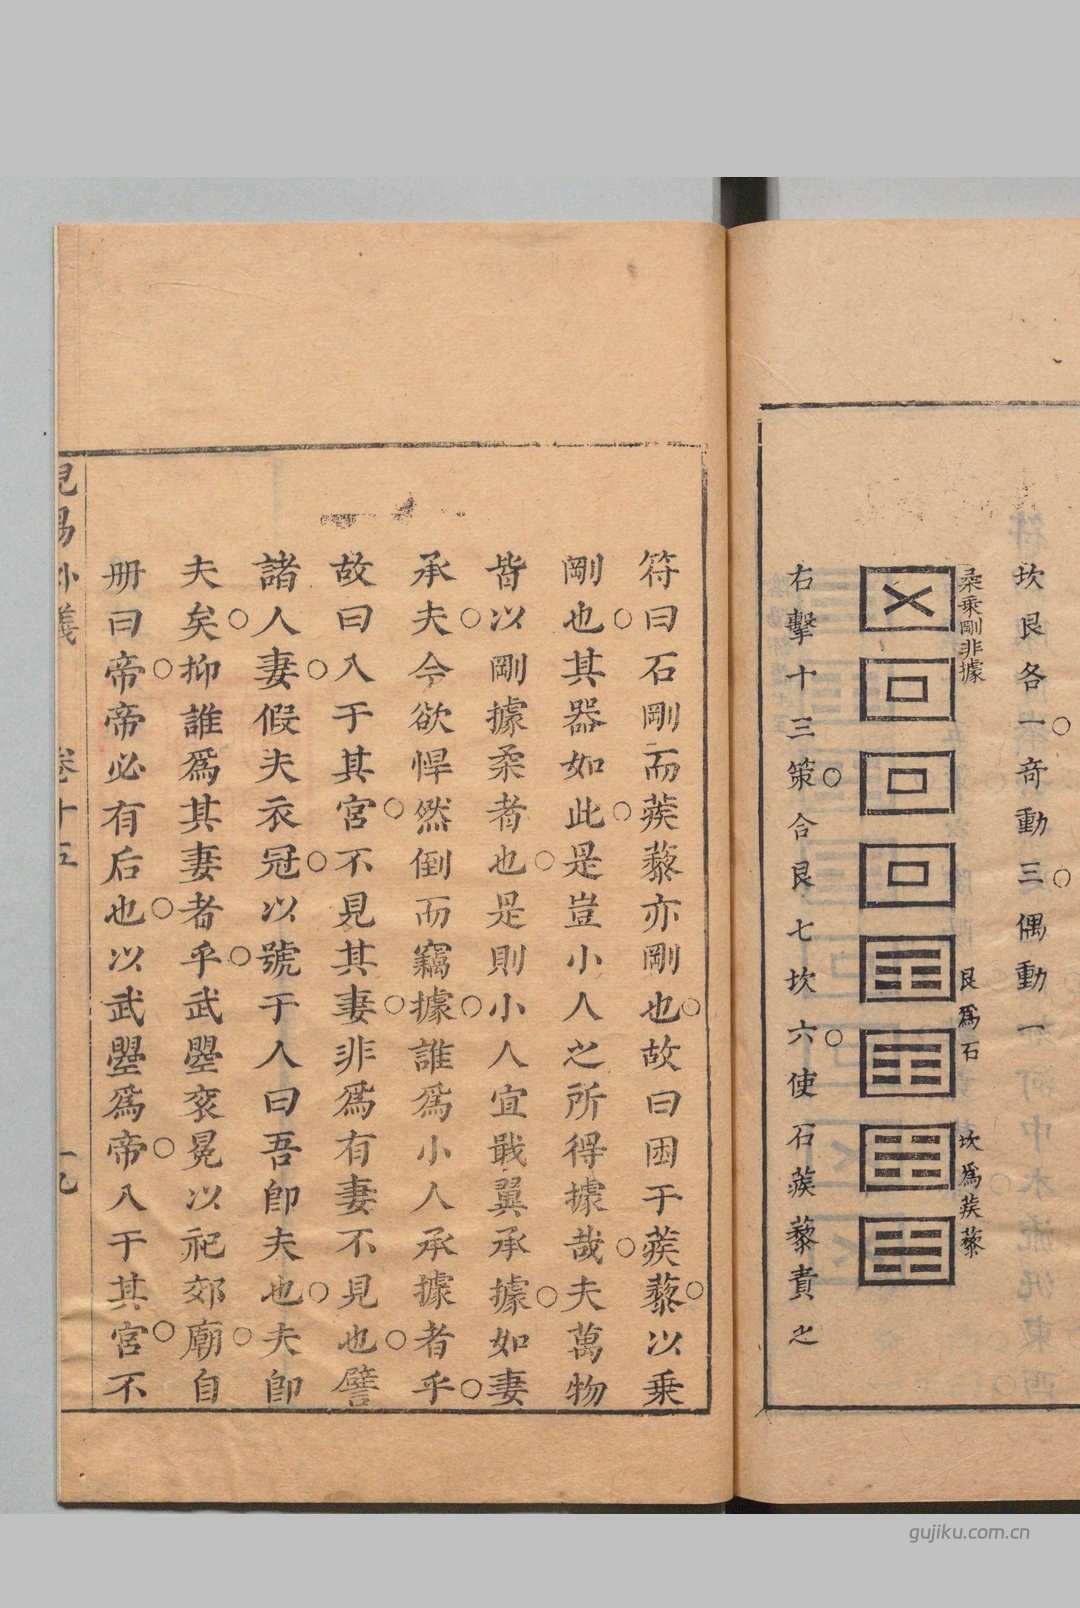 坎艮各一奇動三偶動一
柔乘剛非據
艮爲石
坎爲蒺藜
右擊十三策合艮七坎六使石蒺藜責之
符曰石剛而蒺藜亦剛也故曰困于蒺藜以乘
剛也其器如此是豈小人之所得據哉夫萬物
皆以剛據柔者也是則小人宜戢翼承據如妻
承夫今欲悍然倒而竊據誰爲小人承據者乎
故曰入于其宮不見其妻非爲有妻不見也譬
諸人妻假夫衣冠以號于人曰吾卽夫也夫卽
夫矣抑誰爲其妻者乎武曌袞冕以祀郊廟自
册曰帝帝必有后也以武曌爲帝入于其宮不
兒易外儀 卷十五 一九
gujiku.com.cn